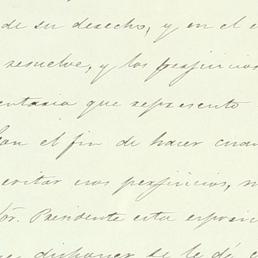 de su derecho, y en el
resuelve, y los perjuicios
que represento
Con el fin de hacer cuan
evitar esos perjuicios, m
Sor. Presidente esta
disponer se le dé c